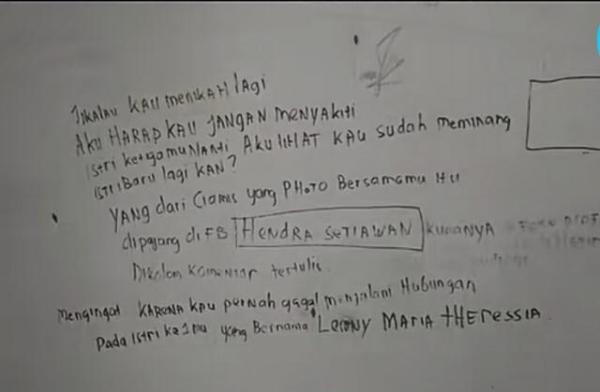 Jikalau KAU menikahi lagi
Aku HARAP KAU JANGAN Menyakiti
istri ketigamu Nanti Aku liHAT KAU sudah meminang
istri Baru lagi KAN?
YANG dari Ciamis yang PHOTO Bersamamu itu
dipajang di FB HENDRA SETIAWAN
Dikolom Komentar tertulis
Mengingat KARENA KAU pernah gagal menjalani Hubungan
Pada istri ke2mu yang Bernama LeOny MARIA tHERESSIA